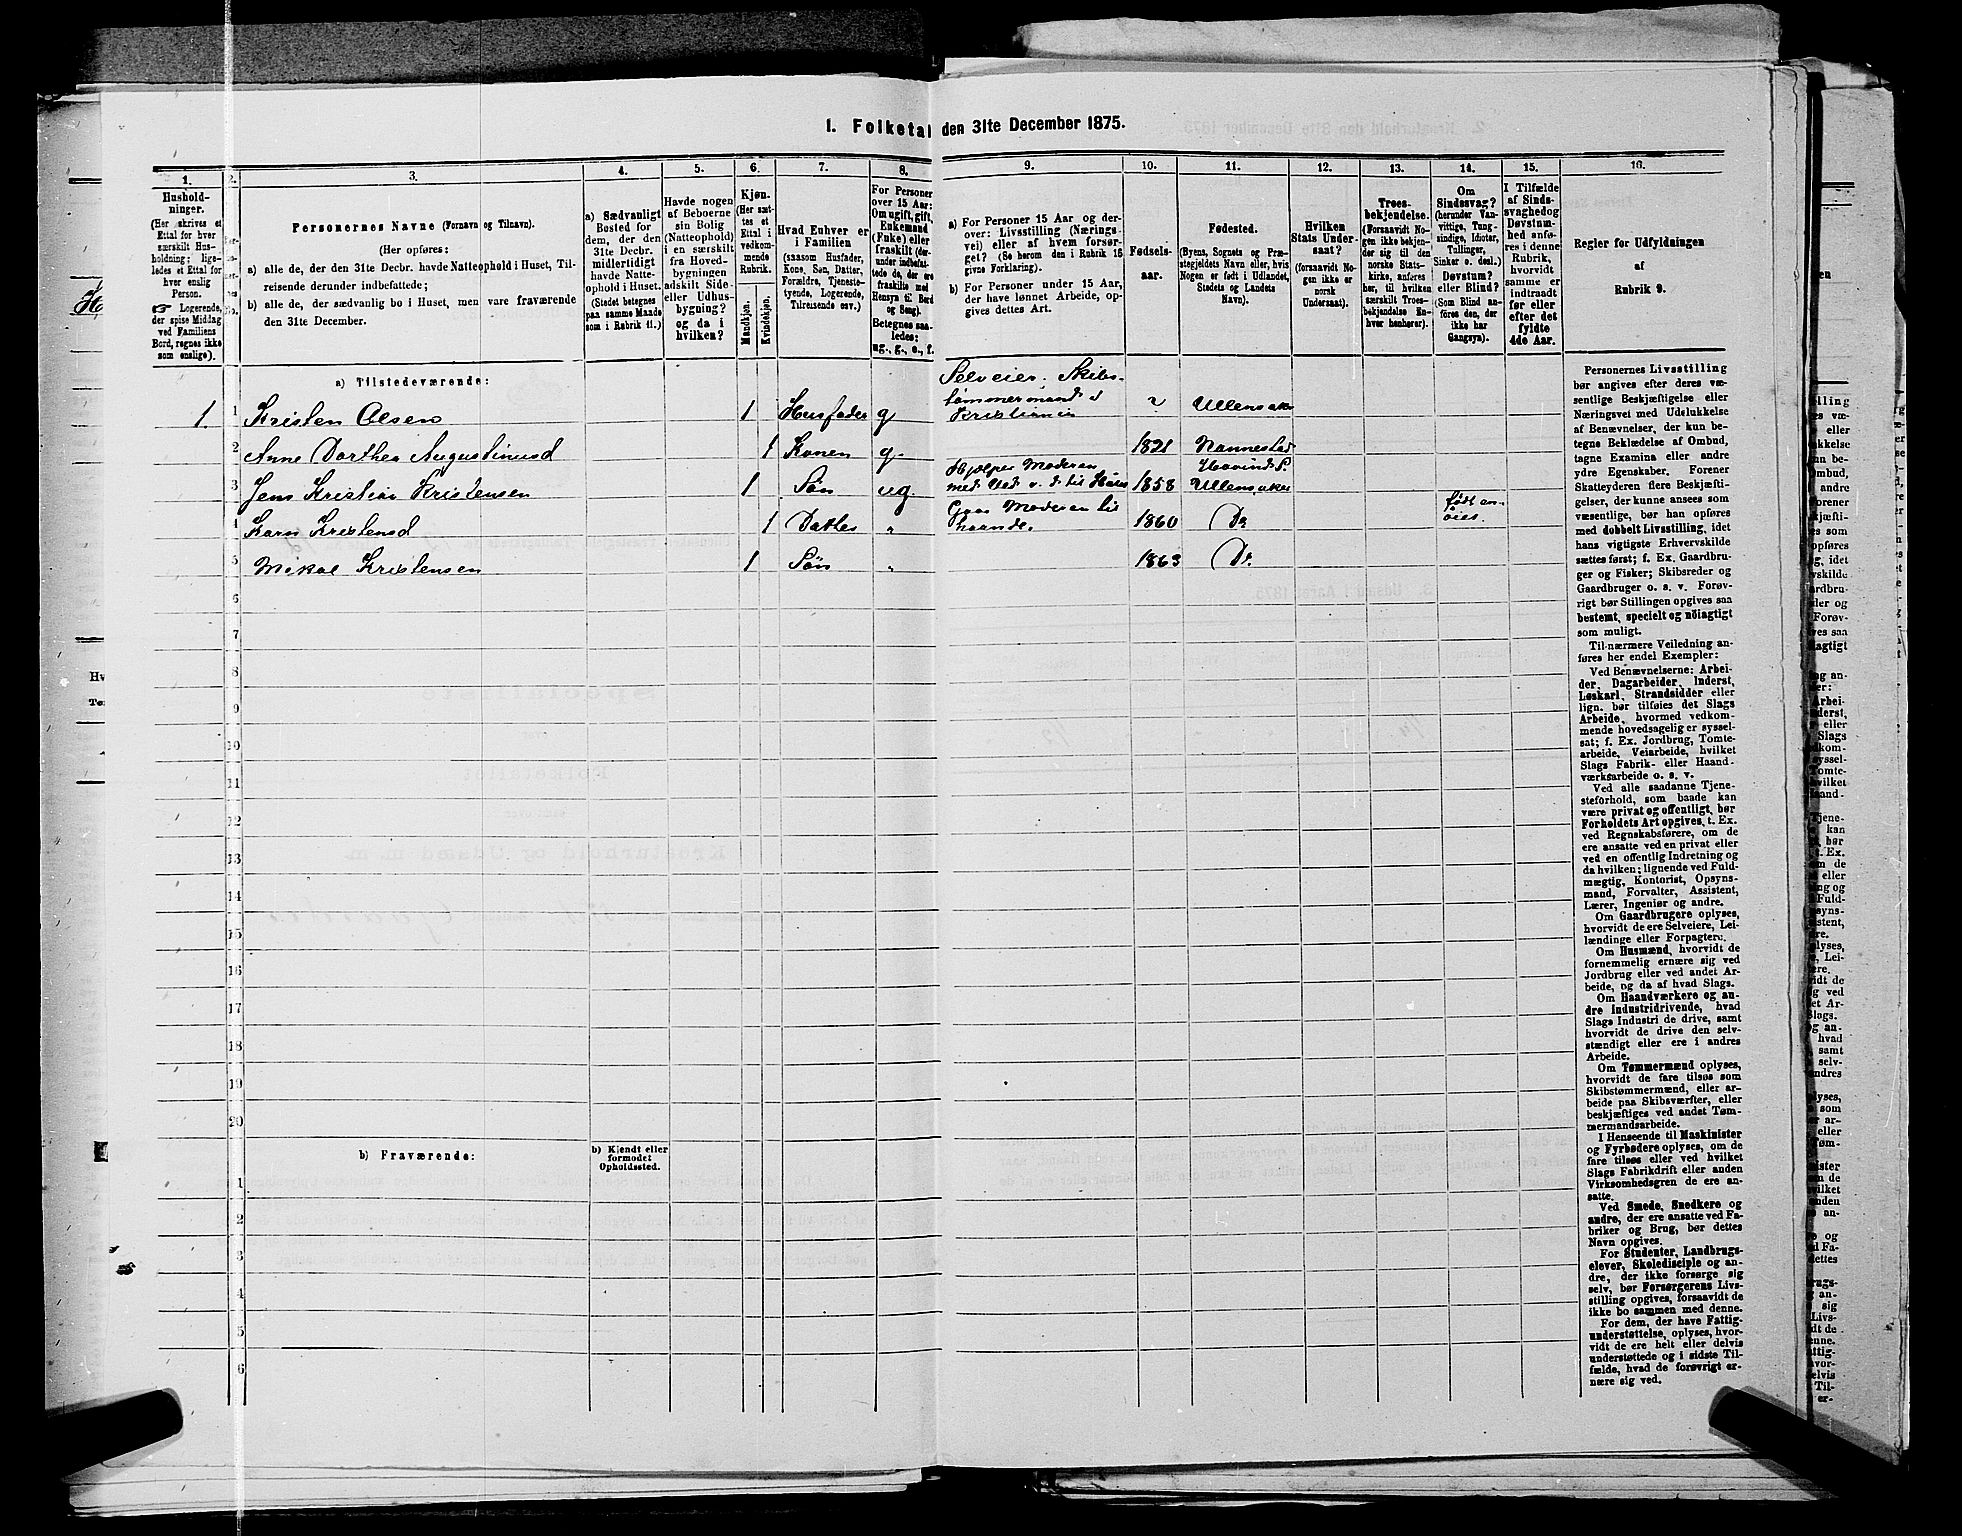 1. Folketal den 31te December 1875.
1.
Hushold-
ninger.
(Her skrives et
Ettal for hver
særskilt Hus-
holdning; lige-
ledes et Ettal for
hver enslig
Person.
☞ Logerende,
der spise Middag
ved Familiens
Bord, regnes ikke
som enslige).
2.
3.
Personernes Navne (Fornavn og Tilnavn).
(Her opføres:
a) alle de, der den 31te Decbr. havde Natteophold i Huset, Til-
reisende derunder indbefattede;
b) alle de, der sædvanlig bo i Huset, men vare fraværende
den 31te December.
4.
a) Sædvanligt
Bosted for
dem, der den
31te Decbr.
midlertidigt
havde Natte-
ophold i Huset.
(Stedet betegnes
paa samme Maade
som i Rubrik 11.)
5.
Havde nogen
af Beboerne
sin Bolig
(Natteophold)
i en særskilt
fra Hoved-
bygningen
adskilt Side-
eller Udhus-
bygning?
og da i
hvilken?
6.
Kjøn.
(Her sæt-
tes et
Ettal i
vedkom-
mende
Rubrik.
Mandkjøn.
Kvindekjøn.
7.
Hvad Enhver er
i Familien
(saasom Husfader,
Kone, Søn, Datter,
Forældre, Tjeneste-
tyende, Logerende,
Tilreisende osv.)
8.
For Personer
over 15 Aar:
Om ugift, gift,
Enkemand
(Enke) eller
fraskilt (der-
under indbefat-
tede de, der ere
fraskilte med
Hensyn til Bord
og Seng).
Betegnes saa-
ledes:
ug., g., e., f.
9.
a) For Personer 15 Aar og der-
over: Livsstilling (Nærings-
vei) eller af hvem forsør-
get? (Se herom den i Rubrik 16
givne Forklaring).
b) For Personer under 15 Aar,
der have lønnet Arbeide, op-
gives dettes Art.
10.
Fødsels-
aar.
11.
Fødested.
(Byens, Sognets og Præ-
stegjeldets Navn eller, hvis
Nogen er født i Udlandet,
Stedets og Landets
Navn).
12.
Hvilken
Stats Under-
saat?
(forsaavidt No-
gen ikke er
norsk
Undersaat).
13.
Troes-
bekjendelse.
(Forsaavidt No-
gen ikke bekjen-
der sig til den
norske Stats-
kirke, anføres
her, til hvilken
særskilt Troes-
bekjendelse En-
hver henhører).
14.
Om
Sindssvag?
(herunder Van-
vittige, Tung-
sindige, Idioter,
Tullinger,
Sinker o. desl.)
Døvstum?
eller Blind?
(Som Blind an-
føres den, der
ikke har
Gangsyn).
15.
I Tilfælde
af Sinds-
svaghed og
Døvstum-
hed anfø-
res i denne
Rubrik,
hvorvidt
samme er
indtraadt
før eller
efter det
fyldte
4de Aar.
16.
Regler for Udfyldningen
af
Rubrik 9.
a) Tilstedeværende:
1. 1 Kristen Olsen 1 Husfader g Selveier, Skibs-
tømmermand i
Kristiania Ullensaker
2 Anne Dorthea Augustinusd 1 Konen g. 1821 Nannestad
3 Jens Kristian Kristensen 1 Søn ug. Hjælper Moderen
med Ved o. d. til Huset 1858 Hovind S.
Ullensaker
4 Karn Kristensd 1 Datter " Gaar Moderen til
haande. 1860 Do født en-
øiet.
5 Mikal Kristensen 1 Søn " 1863 Do.
6
7
8
9
10
11
12
13
14
15
16
17
18
19
20
b) Fraværende:
b) Kjendt eller
formodet
Opholdssted.
1
2
3
4
5
6
Personernes Livsstilling
bør angives efter deres væ-
sentlige Beskjæftigelse eller
Næringsvei med Udelukkelse
af Benævnelser, der kun be-
tegne Beklædelse af Ombud,
tagne Examina eller andre
ydre Egenskaber. Forener
Skatteyderen flere Beskjæfti-
gelser, der kunne ansees som
væsentlige, bør han opgives
med dobbelt Livsstilling, idet
hans vigtigste Erhvervskilde
sættes først; f. Ex. Gaardbru-
ger og Fisker; Skibsreder og
Gaardbruger o. s. v. Forøv-
rigt bør Stillingen opgives saa
bestemt, specielt og nöiagtigt
som muligt.
Til nærmere Veiledning an-
føres her endel Exempler:
Ved Benævnelserne: Arbei-
der, Dagarbeider, Inderst,
Løskarl, Strandsidder eller
lign. bør tilføies det Slags
Arbeide, hvormed vedkom-
mende hovedsagelig er syssel-
sat; f. Ex. Jordbrug, Tomte-
arbeide, Veiarbeide, hvilket
Slags Fabrik- eller Haand-
værksarbeide o. s. v.
Ved alle saadanne Tjene-
steforhold, som baade kan
være privat og offentligt, bør
Forholdets Art opgives, t. Ex.
ved Regnskabsførere, om de
ere ansatte ved en privat eller
ved en offentlig Indretning og
da hvilken; lignende ved Fuld-
mægtig, Kontorist, Opsyns-
mand, Forvalter, Assistent,
Lærer, Ingeniør og andre.
Om Gaardbrugere oplyses,
hvorvidt de ere Selveiere, Lei-
lændinge eller Forpagtere.
Om Husmænd, hvorvidt de
fornemmelig ernære sig ved
Jordbrug eller ved andet Ar-
beide, og da af hvad Slags.
Om Haandværkere og an-
dre Industridrivende, hvad
Slags Industri de drive, samt
hvorvidt de drive den selv-
stændigt eller ere i andres
Arbeide.
Om Tømmermænd oplyses,
hvorvidt de fare tilsøs som
Skibstømmermænd, eller ar-
beide paa Skibsværfter, eller
beskjæftiges ved andet Tøm-
mermandsarbeide.
I Henseende til Maskinister
og Fyrbødere oplyses, om de
fare tilsøs eller ved hvilket
Slags Fabrikdrift eller anden
Virksomhedsgren de ere an-
satte.
Ved Smede, Snedkere og
andre, der ere ansatte ved Fa-
briker og Brug, bør dettes
Navn opgives.
For Studenter, Landbrugs-
elever, Skoledisciple og an-
dre, der ikke forsørge sig
selv, bør Forsørgerens Livs-
stilling opgives, forsaavidt de
ikke bo sammen med denne.
For dem, der have Fattig-
understøttelse, oplyses, hvor-
vidt de ere helt eller delvis
understøttede og i sidste Til-
fælde, hvad de forøvrigt er-
nære sig ved.